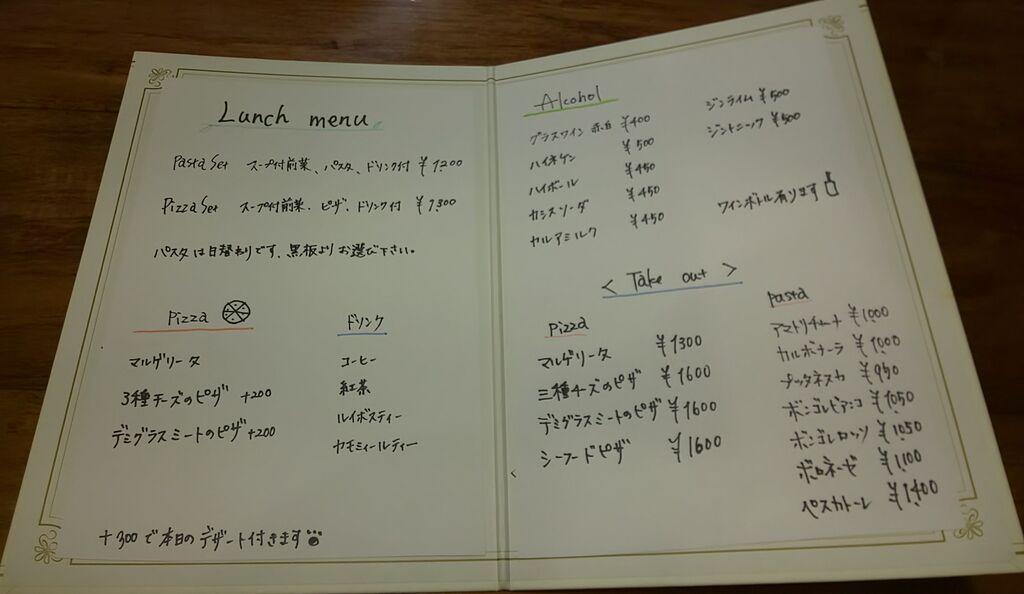 Lunch menu
Pasta Set スープ付前菜、パスタ、ドリンク付 ¥1200
Pizza Set スープ付前菜、ピザ、ドリンク付 ¥1300
パスタは日替わりです、黒板よりお選び下さい。
Pizza
マルゲリータ
3種チーズのピザ +200
デミグラスミートのピザ +200
ドリンク
コーヒー
紅茶
ルイボスティー
カモミィールティー
+300で本日のデザート付きます
Alcohol
グラスワイン 赤白 ¥400
ハイネケン ¥500
ハイボール ¥450
カシスソーダ ¥450
カルアミルク ¥450
ジンライム ¥500
ジントニック ¥500
ワインボトル有ります
< Take out >
Pizza
マルゲリータ ¥1300
三種チーズのピザ ¥1600
デミグラスミートのピザ ¥1600
シーフードピザ ¥1600
Pasta
アマトリチャーナ ¥1000
カルボナーラ ¥1000
プッタネスカ ¥950
ボンゴレビアンコ ¥1050
ボンゴレロッソ ¥1050
ボロネーゼ ¥1100
ペスカトーレ ¥1400